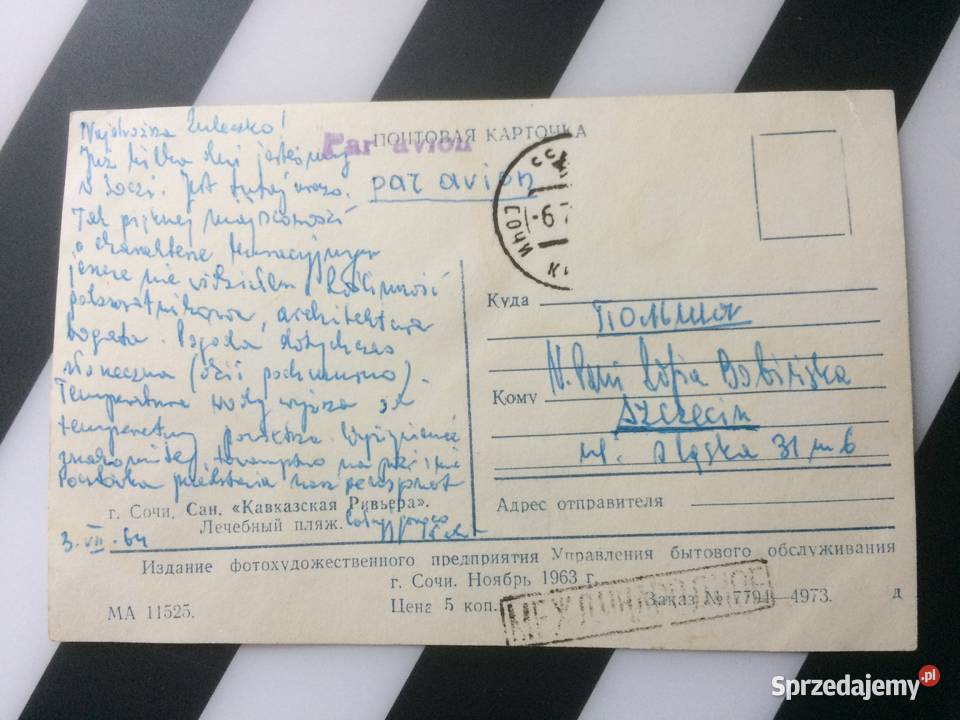 Par avion
ПОЧТОВАЯ КАРТОЧКА
par avion
СОЧИ
-6
Już kilka dni jesteśmy
w Soczi. Jest tutaj
Tak pięknej miejscowości
o charakterze
jeszcze nie widziałem. Roślinność
podzwrotnikowa, architektura
bogata. Pogoda dotychczas
słoneczna (dziś pochmurno).
Temperatura wody wyższa od
temperatury powietrza.
Pocztówka przedstawia nasz
3.VII.64
Куда
Польша
W. Pani Zofia
Кому
Szczecin
ul. Śląska 31 m 6
Адрес отправителя
г. Сочи. Сан. «Кавказская Ривьера».
Лечебный пляж.
Издание фотохудожественного предприятия Управления бытового обслуживания
г. Сочи. Ноябрь 1963 г.
МА 11525.
Цена 5 коп.
Заказ № 7794—4973.
д
МЕЖДУНАРОДНОЕ
Sprzedajemy.pl